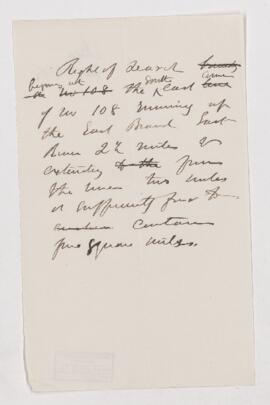 Right of Search
begins at the South East
of No 108 running up
the East Branch East
River 2½ miles &
extending from
the river two miles
or sufficiently far to
contain
five square miles.